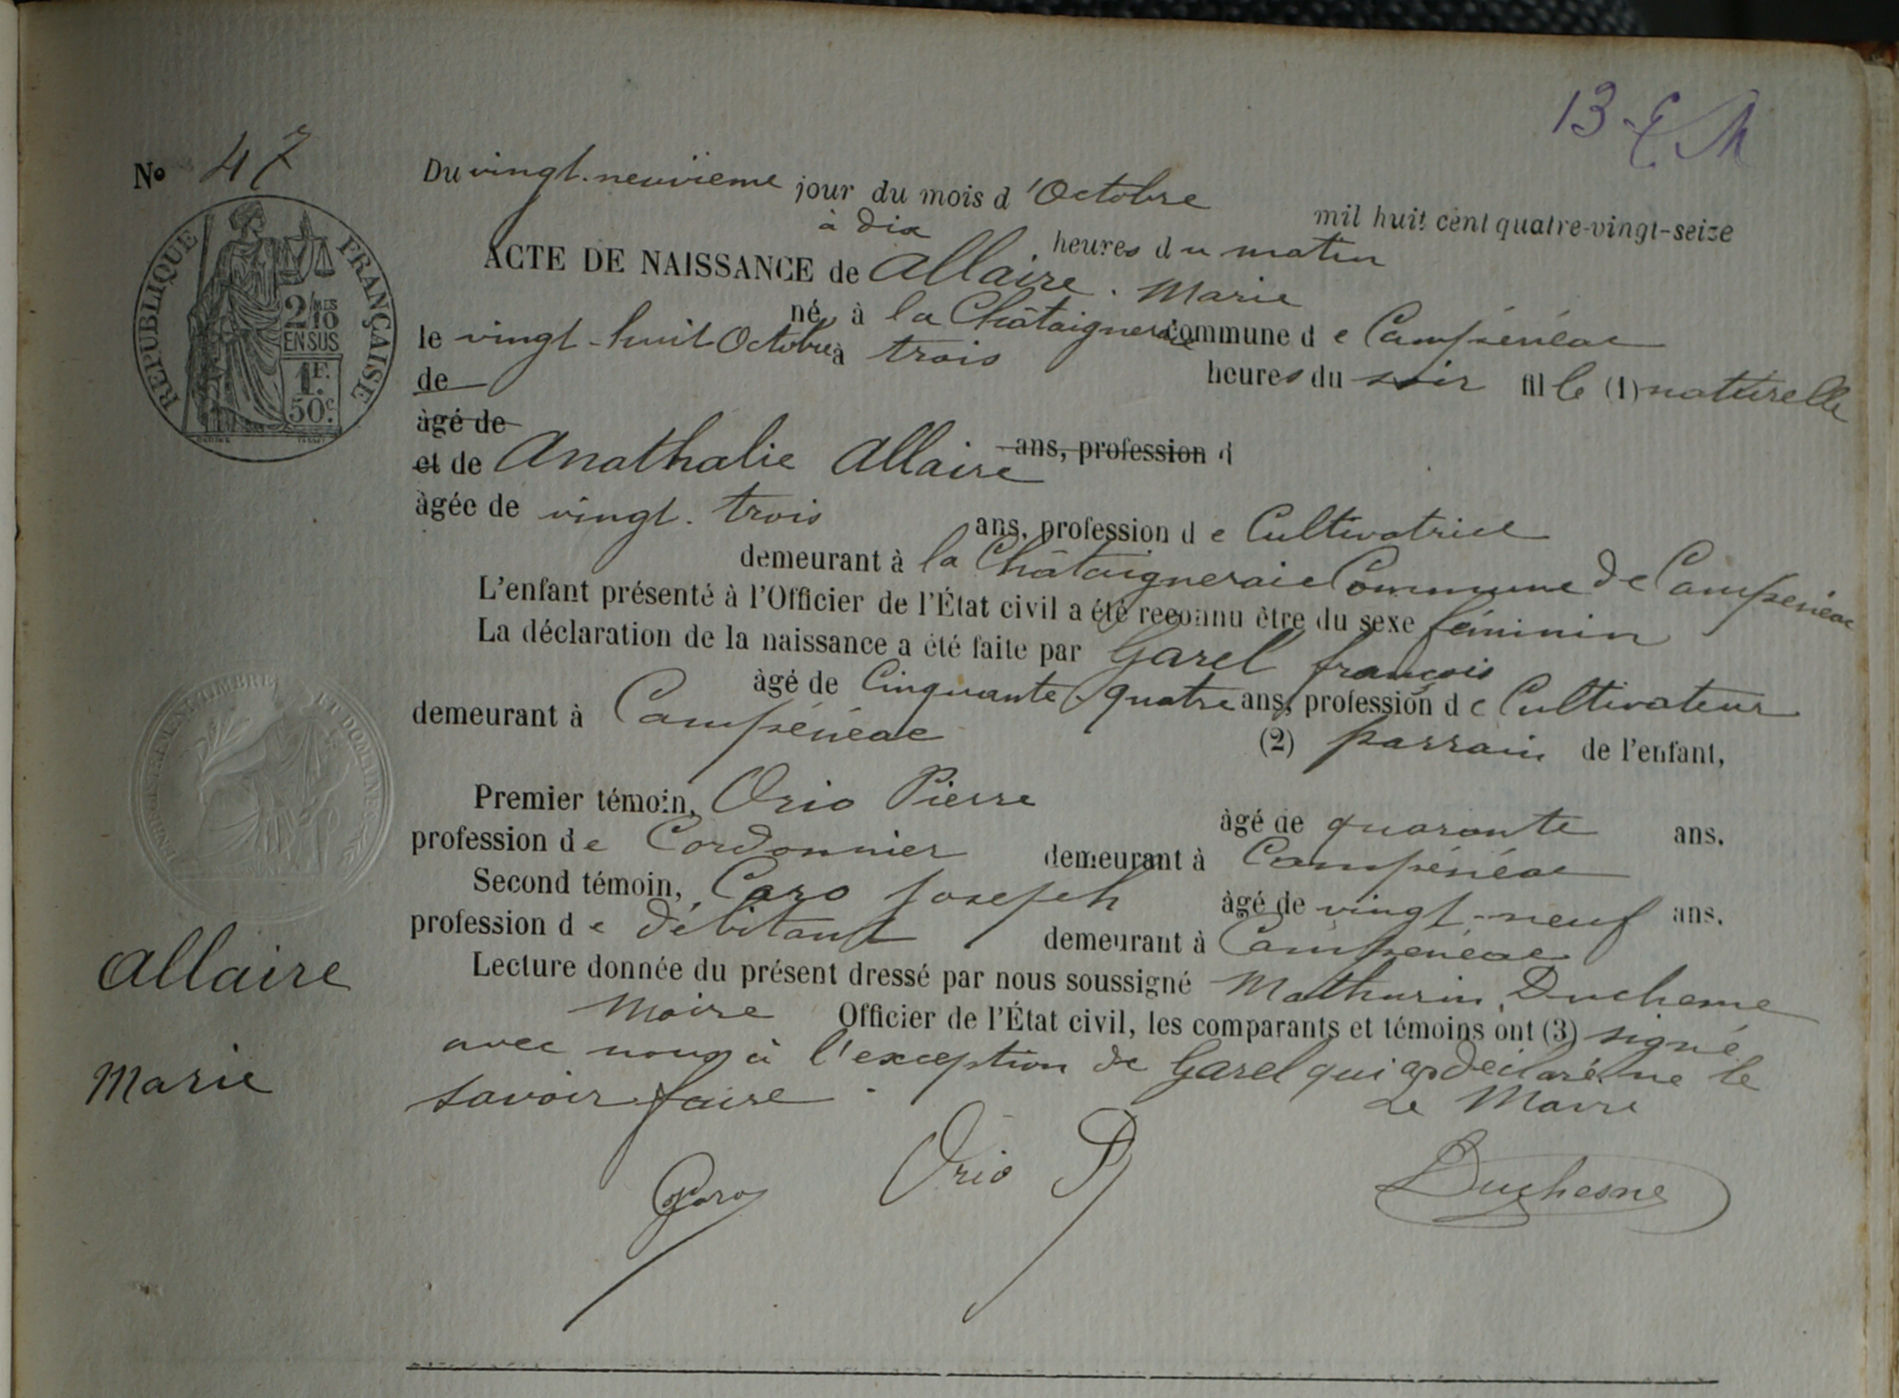 13 - E M
No 47
Du vingt-neuvième jour du mois d'Octobre mil huit cent quatre-vingt-seize
à dix heures du matin
ACTE DE NAISSANCE de Allaire Marie
né à la Châtaigneraie commune de Campénéac
le vingt-huit Octobre à trois heures du soir fille (1) naturelle
de
âgé de ans, profession d
et de Anathalie Allaire
âgée de vingt-trois ans, profession de Cultivatrice
demeurant à la Châtaigneraie Commune de Campénéac
L'enfant présenté à l'Officier de l'État civil a été reconnu être du sexe féminin
La déclaration de la naissance a été faite par Garel françois
âgé de Cinquante quatre ans, profession de Cultivateur
demeurant à Campénéac (2) parrain de l'enfant,
Premier témoin, Orio Pierre âgé de quarante ans.
profession de Cordonnier demeurant à Campénéac
Second témoin, Caro Joseph âgé de vingt-neuf ans.
profession de débitant demeurant à Campénéac
Lecture donnée du présent dressé par nous soussigné Mathurin Duchesne
Maire Officier de l'État civil, les comparants et témoins ont (3) signé
avec nous à l'exception de Garel qui a déclaré ne le
savoir faire.
Le Maire
Caro Orio P Duchesne
REPUBLIQUE FRANÇAISE
2/10 MES
EN SUS
1F.
50c.
Allaire
Marie